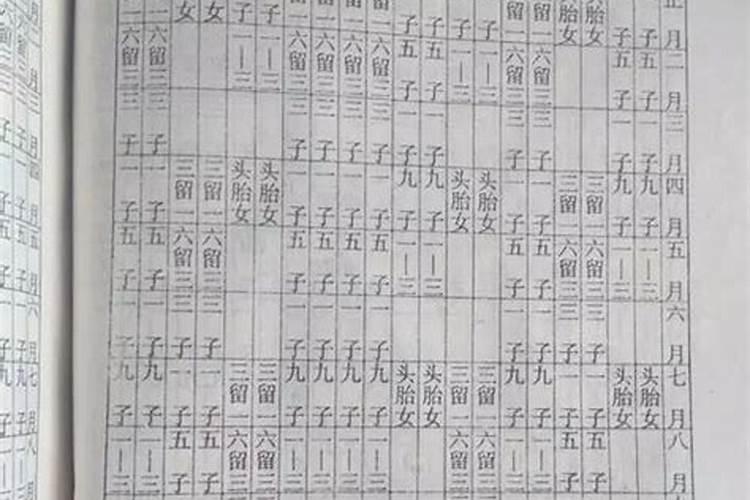 正月二月三月四月五月六月七月八月
子五子一子九子一—三头胎女
子五子一子九子一—三头胎女
胎女三留一六留三三子一子五子
胎女三留一六留三三子一子五子
留一六留三三子一子五子一子九子一—三
留一六留三三子一子五子一子九子一—三
子一—三头胎女三留一六留三
子一—三头胎女三留一六留三
子五子一子九子一—三头胎女
子五子一子九子一—三头胎女
留一六留三三子一子五子一子九子一—三
一六留三三子一子五子一子九子一—三
一六留三三子一子五子一子九子一—三
一六留三三子一子五子一子九子一—三
子一—三头胎女三留一六留三
子一—三头胎女三留一六留三
女三留一六留三三子一子五子
女三留一六留三三子一子五子
一六留三三子一子五子一子九子一—三
一六留三三子一子五子一子九子一—三
月二月三月四月五月六月七月八月